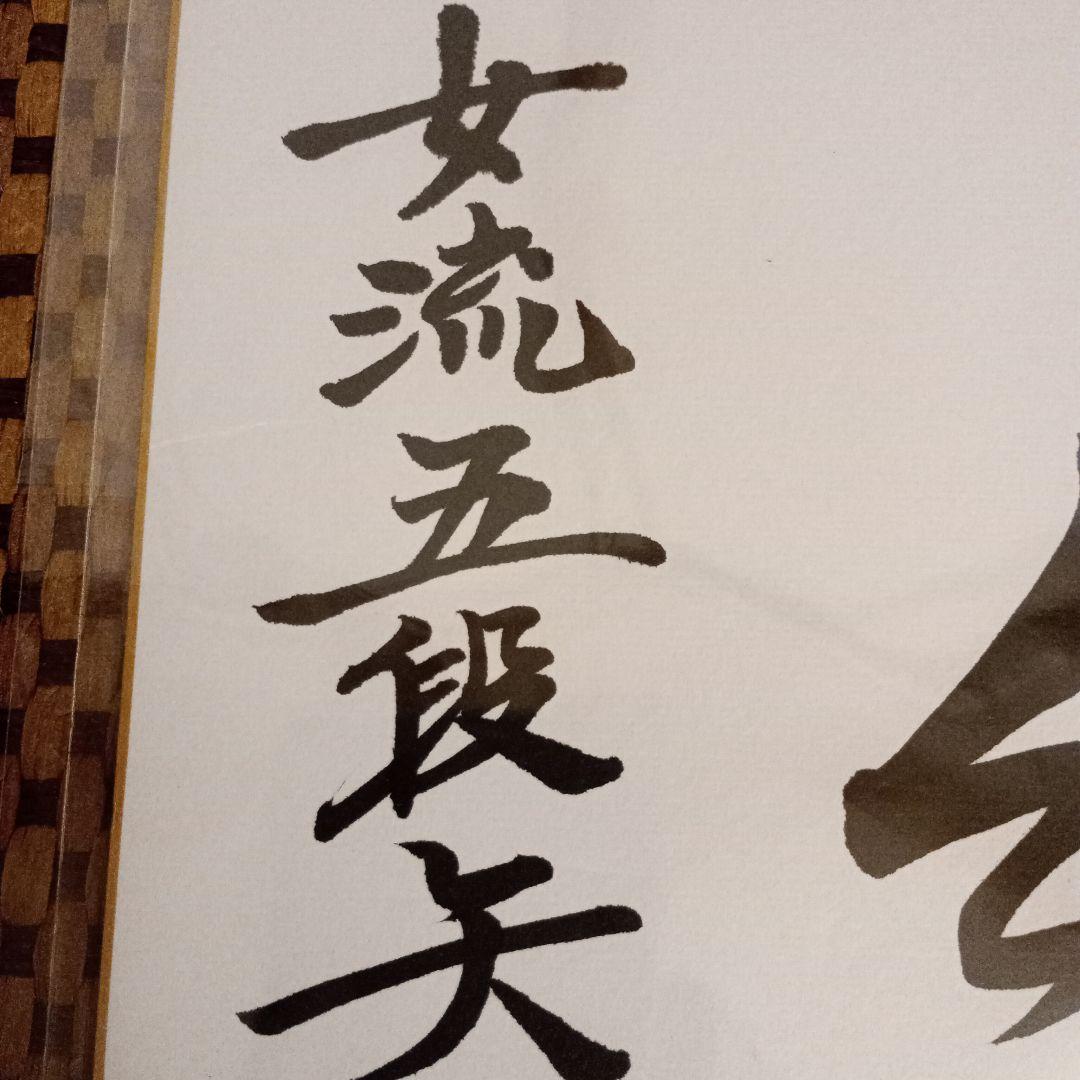 女流五段矢